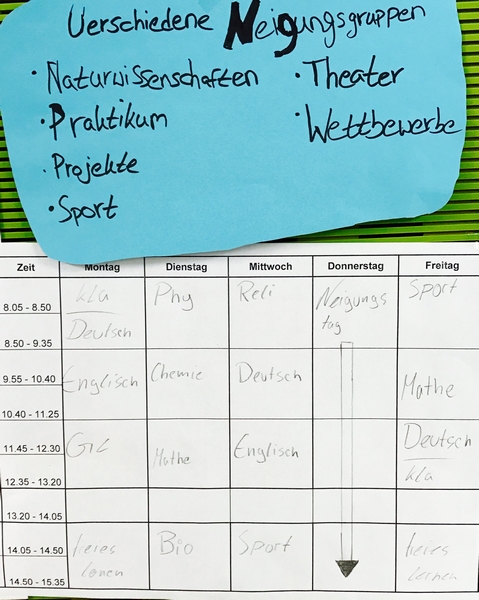 Verschiedene Neigungsgruppen
• Naturwissenschaften
• Praktikum
• Projekte
• Sport
• Theater
• Wettbewerbe
Zeit Montag Dienstag Mittwoch Donnerstag Freitag
8.05 - 8.50 kla Phy Reli Neigungs Sport
8.50 - 9.35 Deutsch tag
9.55 - 10.40 Englisch Chemie Deutsch Mathe
10.40 - 11.25
11.45 - 12.30 GL Mathe Englisch Deutsch
12.35 - 13.20 kla
13.20 - 14.05
14.05 - 14.50 freies Bio Sport freies
14.50 - 15.35 Lernen Lernen